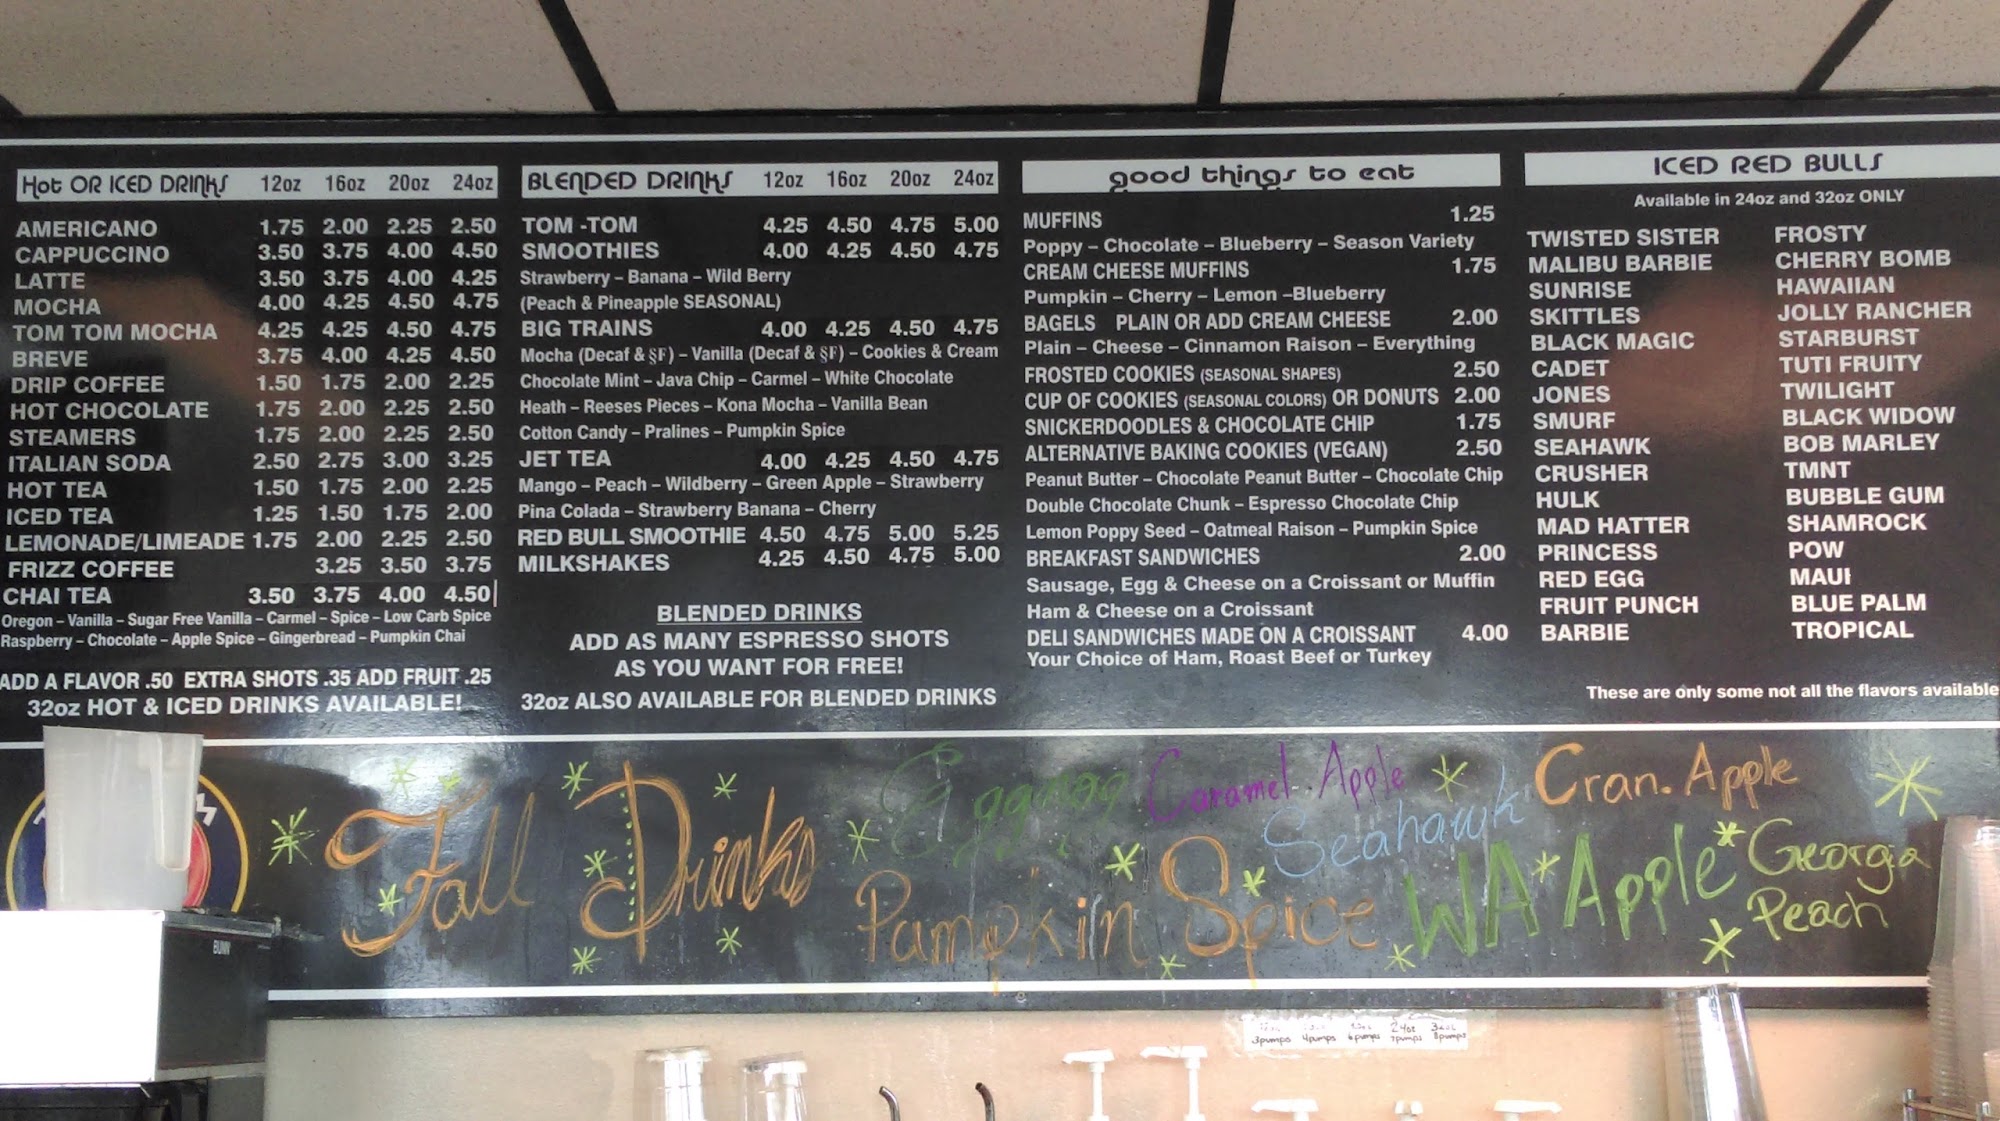 Hot OR ICED DRINKS 12oz 16oz 20oz 24oz
AMERICANO 1.75 2.00 2.25 2.50
CAPPUCCINO 3.50 3.75 4.00 4.50
LATTE 3.50 3.75 4.00 4.25
MOCHA 4.00 4.25 4.50 4.75
TOM TOM MOCHA 4.25 4.25 4.50 4.75
BREVE 3.75 4.00 4.25 4.50
DRIP COFFEE 1.50 1.75 2.00 2.25
HOT CHOCOLATE 1.75 2.00 2.25 2.50
STEAMERS 1.75 2.00 2.25 2.50
ITALIAN SODA 2.50 2.75 3.00 3.25
HOT TEA 1.50 1.75 2.00 2.25
ICED TEA 1.25 1.50 1.75 2.00
LEMONADE/LIMEADE 1.75 2.00 2.25 2.50
FRIZZ COFFEE 3.25 3.50 3.75
CHAI TEA 3.50 3.75 4.00 4.50
Oregon – Vanilla – Sugar Free Vanilla – Carmel – Spice – Low Carb Spice
Raspberry – Chocolate – Apple Spice – Gingerbread – Pumpkin Chai
ADD A FLAVOR .50 EXTRA SHOTS .35 ADD FRUIT .25
32oz HOT & ICED DRINKS AVAILABLE!
BLENDED DRINKS 12oz 16oz 20oz 24oz
TOM -TOM 4.25 4.50 4.75 5.00
SMOOTHIES 4.00 4.25 4.50 4.75
Strawberry – Banana – Wild Berry
(Peach & Pineapple SEASONAL)
BIG TRAINS 4.00 4.25 4.50 4.75
Mocha (Decaf & SF) – Vanilla (Decaf & SF) – Cookies & Cream
Chocolate Mint – Java Chip – Carmel – White Chocolate
Heath – Reeses Pieces – Kona Mocha – Vanilla Bean
Cotton Candy – Pralines – Pumpkin Spice
JET TEA 4.00 4.25 4.50 4.75
Mango – Peach – Wildberry – Green Apple – Strawberry
Pina Colada – Strawberry Banana – Cherry
RED BULL SMOOTHIE 4.50 4.75 5.00 5.25
MILKSHAKES 4.25 4.50 4.75 5.00
BLENDED DRINKS
ADD AS MANY ESPRESSO SHOTS
AS YOU WANT FOR FREE!
32oz ALSO AVAILABLE FOR BLENDED DRINKS
good things to eat
MUFFINS 1.25
Poppy – Chocolate – Blueberry – Season Variety
CREAM CHEESE MUFFINS 1.75
Pumpkin – Cherry – Lemon –Blueberry
BAGELS PLAIN OR ADD CREAM CHEESE 2.00
Plain – Cheese – Cinnamon Raison – Everything
FROSTED COOKIES (SEASONAL SHAPES) 2.50
CUP OF COOKIES (SEASONAL COLORS) OR DONUTS 2.00
SNICKERDOODLES & CHOCOLATE CHIP 1.75
ALTERNATIVE BAKING COOKIES (VEGAN) 2.50
Peanut Butter – Chocolate Peanut Butter – Chocolate Chip
Double Chocolate Chunk – Espresso Chocolate Chip
Lemon Poppy Seed – Oatmeal Raison – Pumpkin Spice
BREAKFAST SANDWICHES 2.00
Sausage, Egg & Cheese on a Croissant or Muffin
Ham & Cheese on a Croissant
DELI SANDWICHES MADE ON A CROISSANT 4.00
Your Choice of Ham, Roast Beef or Turkey
ICED RED BULLS
Available in 24oz and 32oz ONLY
TWISTED SISTER FROSTY
MALIBU BARBIE CHERRY BOMB
SUNRISE HAWAIIAN
SKITTLES JOLLY RANCHER
BLACK MAGIC STARBURST
CADET TUTI FRUITY
JONES TWILIGHT
SMURF BLACK WIDOW
SEAHAWK BOB MARLEY
CRUSHER TMNT
HULK BUBBLE GUM
MAD HATTER SHAMROCK
PRINCESS POW
RED EGG MAUI
FRUIT PUNCH BLUE PALM
BARBIE TROPICAL
These are only some not all the flavors available
Fall Drinks
Eggnog Caramel. Apple Cran. Apple
Seahawk
Pumpkin Spice WA Apple Georgia
Peach
BUNN
24oz 32oz
3pumps 4pumps 6pumps 7pumps 8pumps